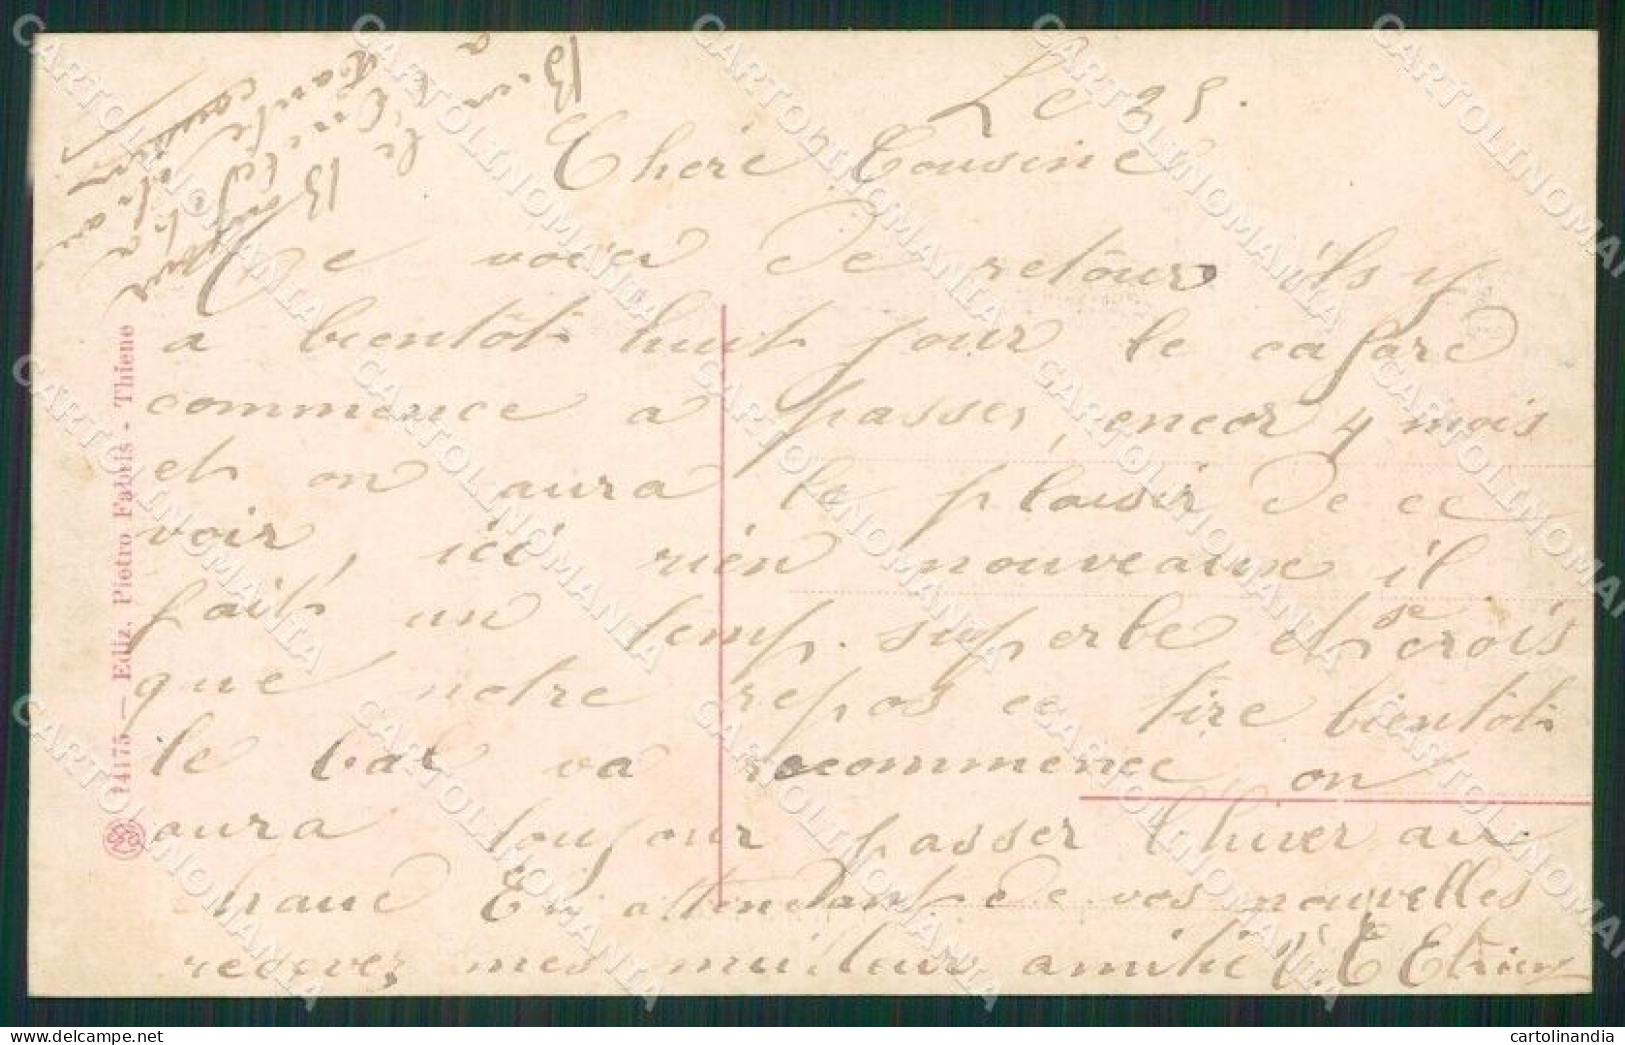 Le 25.
Chere Cousine
Me voici de retour ils y
a bientôt huit jour le cafard
commence a passer, encor 4 mois
et on aura le plaisir de ce
voir, ici rien nouveaux il
fait un temp. superbe et se crois
que notre repos ce tire bientôt
le bal va recommence on
aura toujour passer l'hiver au
chaud En attendant de vos nouvelles
recevez mes meilleur amitié
Bien
a
14175 — Ediz. Pietro Fabris - Thiene
CARTOLINOMANIA
cartolinandia